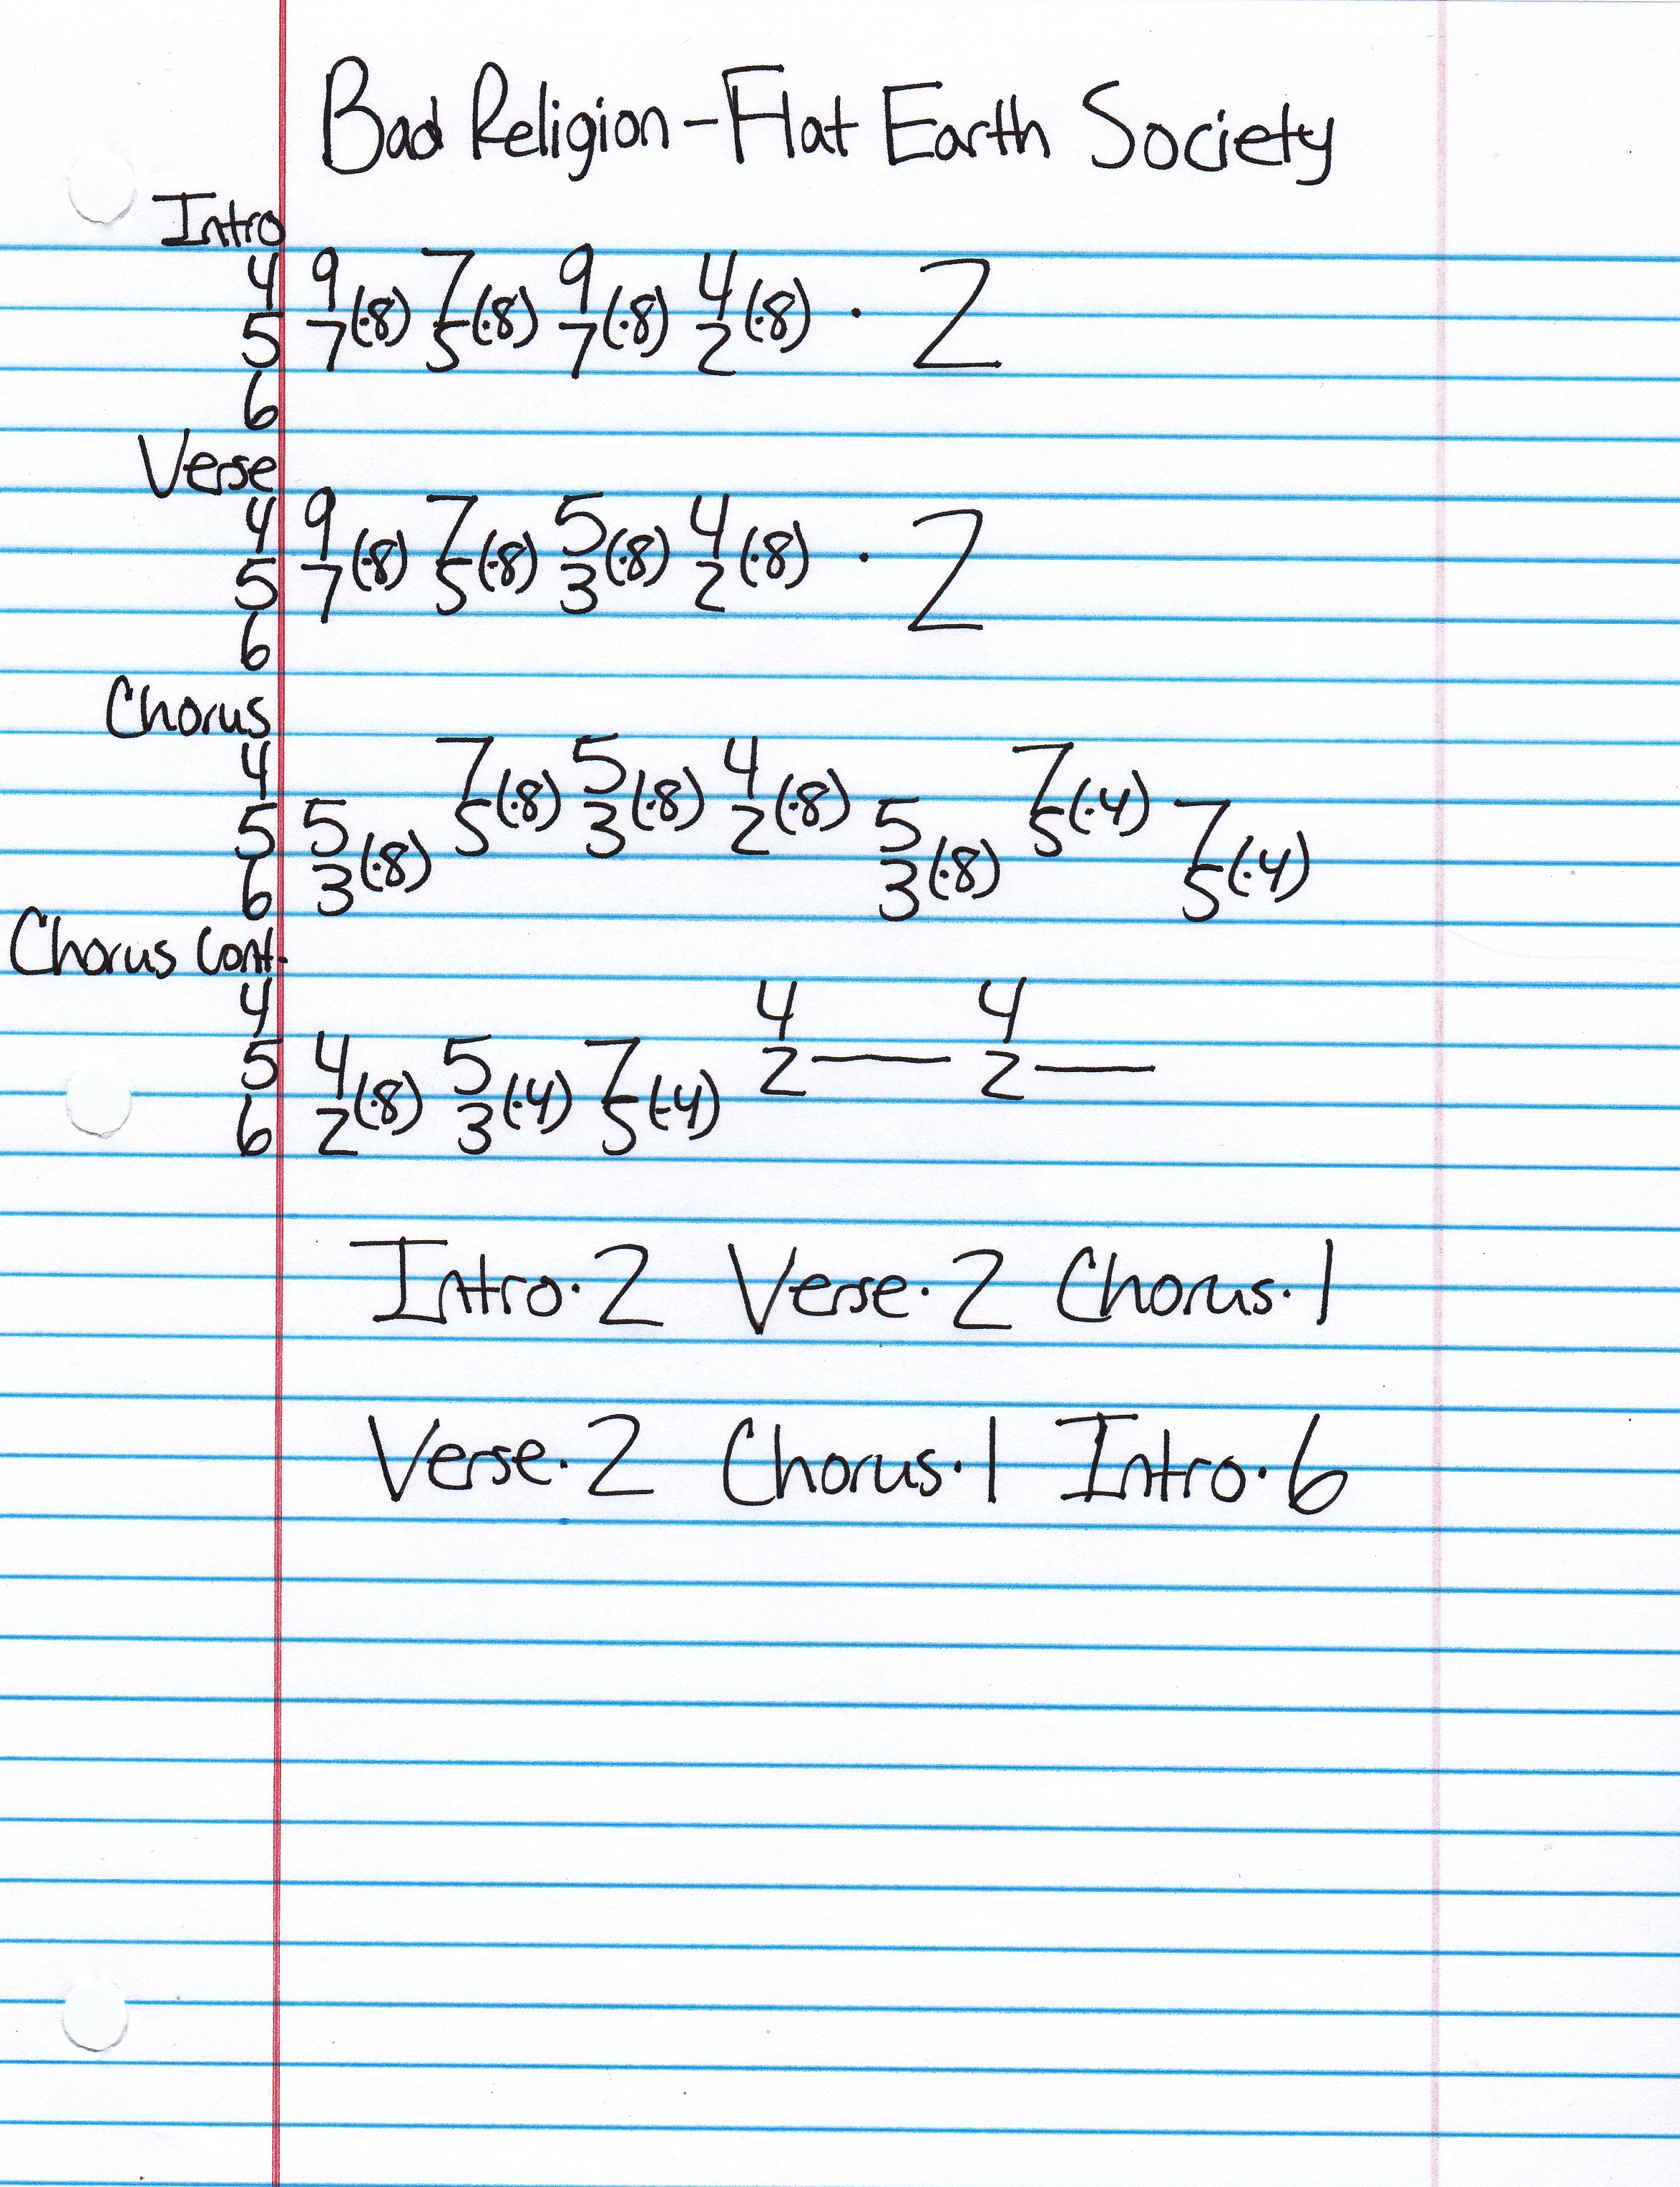 Bad Religion - Flat Earth Society
Intro
4 9 7 9 4
5 7(·8) 5(·8) 7(·8) 2(·8) · 2
6
Verse
4 9 7 5 4
5 7(·8) 5(·8) 3(·8) 2(·8) · 2
6
Chorus
4 7 5 4 7
5 5 5(·8) 3(·8) 2(·8) 5 5(·4) 7
6 3(·8) 3(·8) 5(·4)
Chorus Cont.
4 4 4
5 4 5 7 2— 2—
6 2(·8) 3(·4) 5(·4)
Intro·2 Verse·2 Chorus·1
Verse·2 Chorus·1 Intro·6